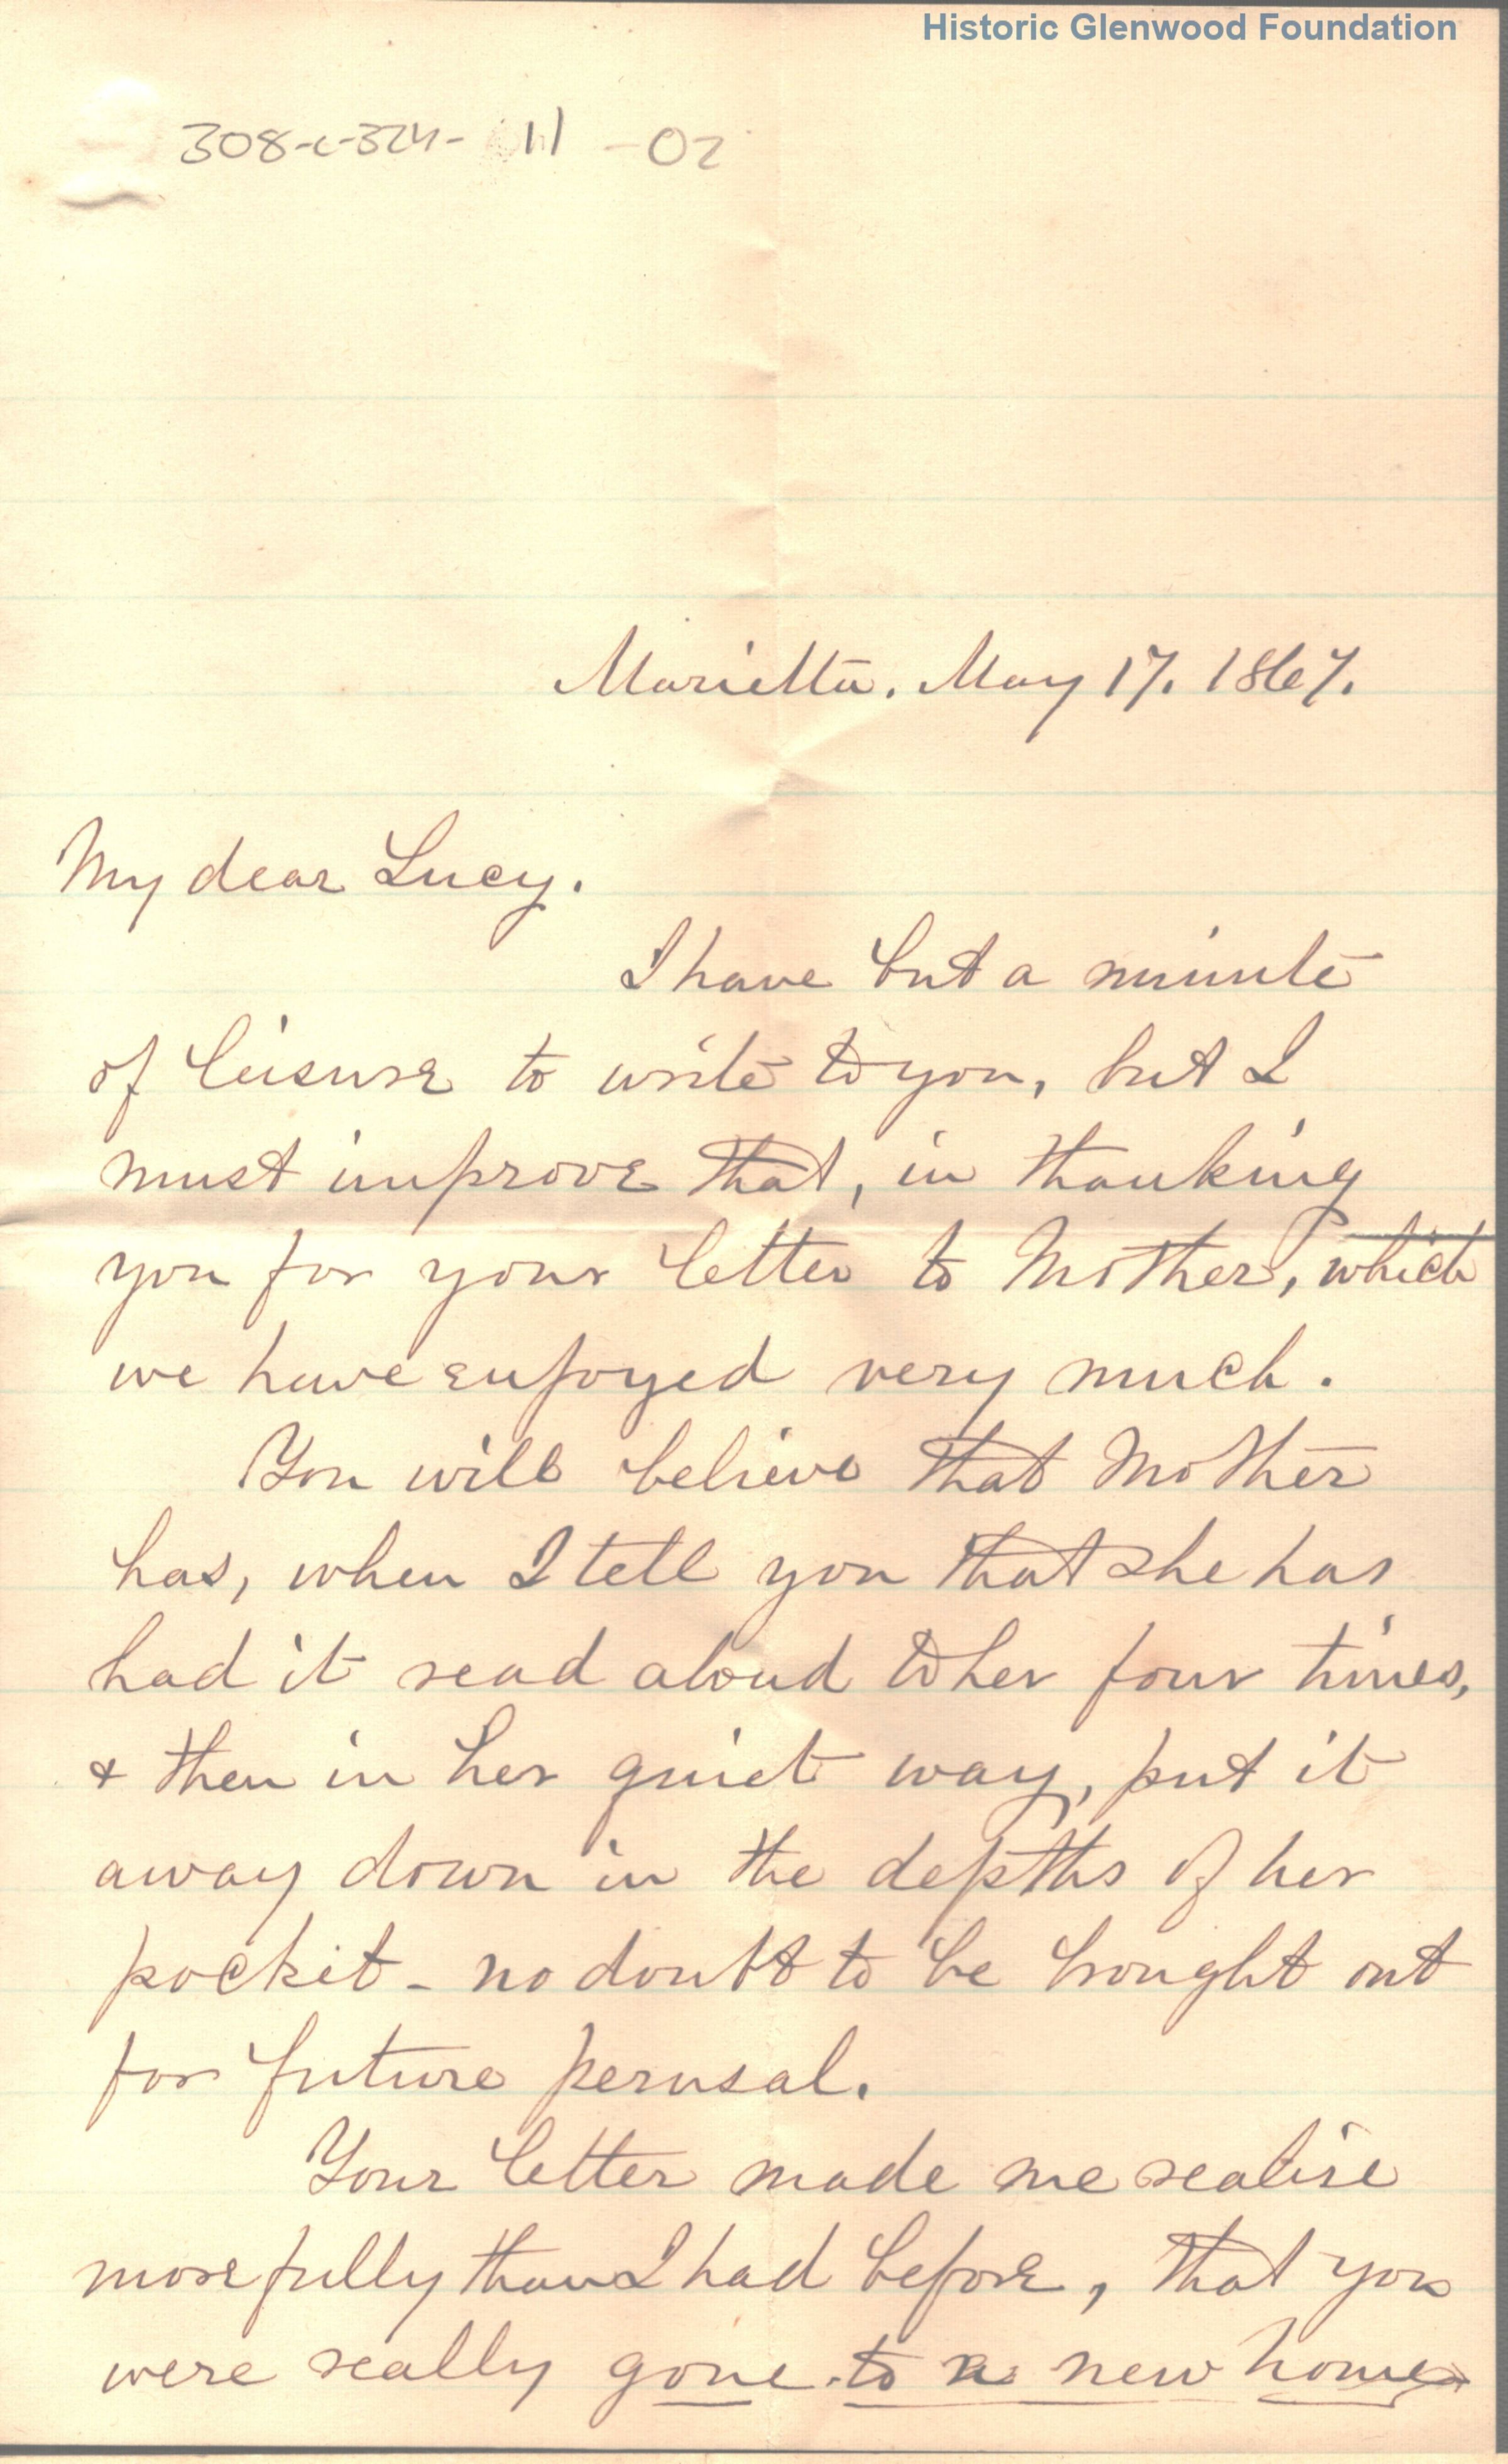 Historic Glenwood Foundation
308-c-324- 111 -02
Marietta. May 17. 1867.
My dear Lucy.
I have but a minute
of leisure to write to you, but I
must improve that, in thanking
you for your letter to Mother, which
we have enjoyed very much.
You will believe that Mother
has, when I tell you that she has
had it read aloud to her four times,
& then in her quiet way, put it
away down in the depths of her
pocket - no doubt to be brought out
for future perusal.
Your letter made me realise
more fully than I had before, that you
were really gone to a new home